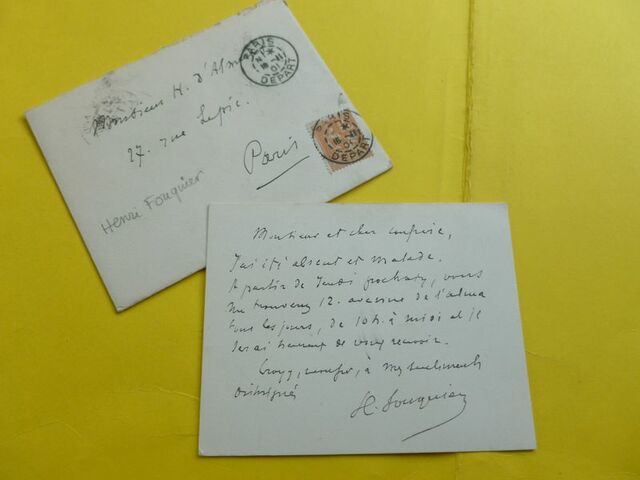 Monsieur H. D'Alm
27. rue Lepic.
Paris
Henri Fouquier
PARIS
16 -11
01
DEPART
DEPART
Monsieur et cher confrère,
J'ai été absent et malade.
A partir de Jeudi prochain, vous
me trouverez 12. avenue de l'alma
tous les jours, de 10h. à midi et je
serai heureux de vous recevoir.
Croyez, monsieur, à mes sentiments
distingués
H. Fouquier